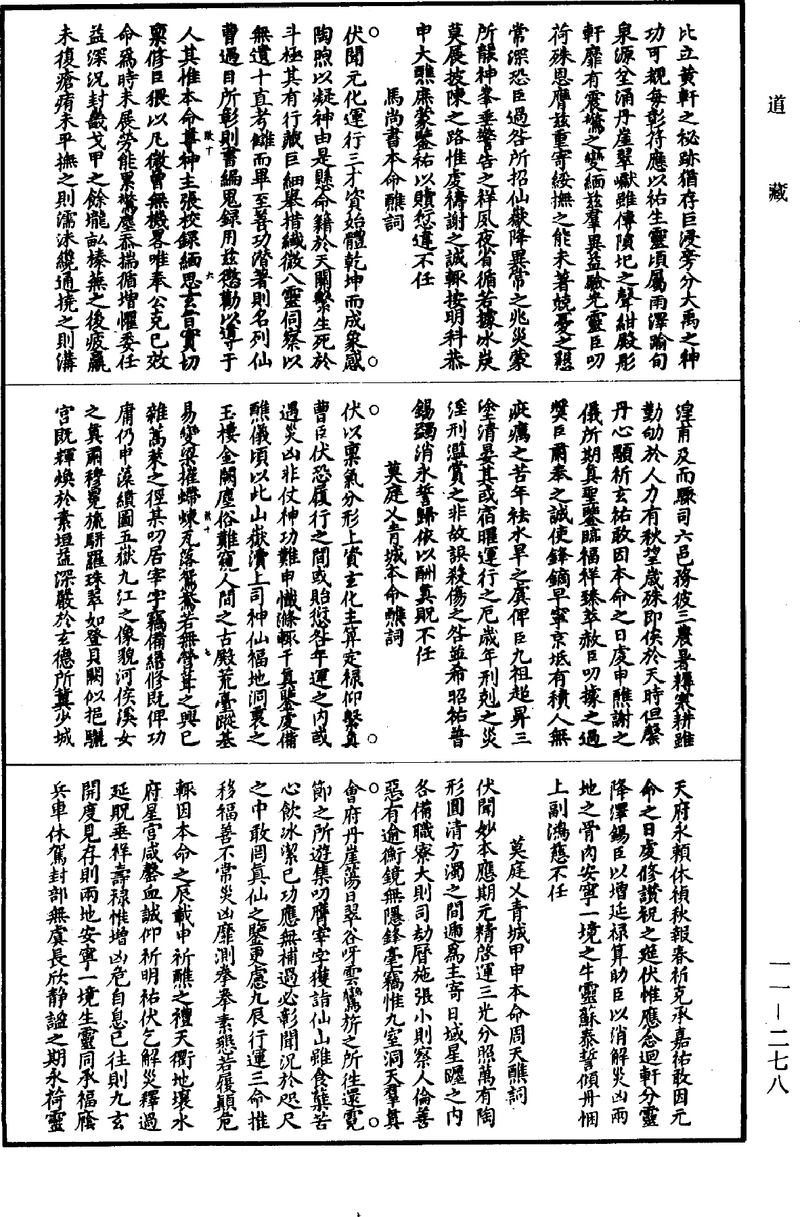 道藏
比立黃軒之祕跡猶存巨浸旁分大禹之神
功可覩每彰符應以祐生靈頃屬雨澤踰旬
泉源坌涌丹崖翠巘雖傳隤圯之聲紺殿彤
軒靡有震驚之變緬茲羣異益驗光靈臣叨
荷殊恩膺茲重寄綏撫之能未著兢憂之懇
常深恐臣過咎所招仙嶽降異常之兆災蒙
所龍神峯垂警告之祥夙夜省循若據冰炭
莫展披陳之路惟虔禱謝之誠輒按明科恭
申大醮庶蒙鑒祐以贖愆違不任
馬尚書本命醮詞
伏聞元化運行三才資始體乾坤而成象感
陶煦以凝神由是懸命籍於天關繫生死於
斗極其有行藏巨細舉措纖微八靈伺察以
無遺十直考讎而畢至善功潛著則名列仙
曹過目所彰則書編鬼錄用茲懲勸以導于
人其惟本命尊神主張校錄緬思玄旨實切
稟修臣猥以凡微曾無機畧唯奉公克己效
命爲時未展勞能累驚塵忝揣循增懼委任
益深況封畿戈甲之餘壠畝榛蕪之後疲羸
未復瘡痏未平撫之則濡沫纔通撓之則溝
隍甫及而驟司六邑務彼三農暑耨寒耕雖
勤劬於人力有秋望歲殊即俟於天時但罄
丹心顒祈玄祐敢因本命之日虔申醮謝之
儀所期真聖鑒臨福祥臻萃赦臣叨據之過
獎臣肅奉之誠使鋒鏑早寧京坻有積人無
疵癘之苦年祛水旱之虞俾臣九祖超昇三
塗清晏其或宿曜運行之厄歲年刑剋之災
淫刑濫賞之非故誤殺傷之咎並希昭祐普
錫蠲消永誓歸依以酬真貺不任
莫庭乂青城本命醮詞
伏以稟氣分形上資玄化主算定祿仰繫真
曹臣伏恐履行之間或貽愆咎年運之內或
遇災凶非仗神功難申懺滌輒干真鑒虔備
醮儀頃以此山嶽瀆上司神仙福地洞裏之
玉樓金闕塵俗難窺人間之古殿荒臺蹤基
易變梁摧蠕蝀瓦落鴛鴦若無營葺之興已
雜蒿萊之徑某叨居宰字竊備繕修既俾功
庸仍申藻繢圖五嶽九江之像貌河侯溪女
之真爾穆冕旒駢羅珠翠如登貝闕似挹驪
宮既輝煥於素垣益深嚴於玄德所冀少城
天府永賴休禎秋報春祈克承嘉祐敢因元
命之日虔修讚祝之筵伏惟應念迴軒分靈
降澤錫臣以增延祿算助臣以消解災凶兩
地之骨肉安寧一境之生靈蘇泰誓傾丹悃
上副鴻慈不任
莫庭乂青城甲申本命周天醮詞
伏聞妙本應期元精啓運三光分照萬有陶
形圓清方濁之間遞爲主寄日域星躔之內
各備職寮大則司劫曆施張小則察人倫善
惡有逾衡鏡無隱鋒毫竊惟九室洞天羣真
會府丹崖蕩日翠谷呀雲鸞旂之所往還霓
節之所遊集叨膺宰字獲詣仙山雖食蘗苦
心飲冰潔己功應無補過必彰聞況於咫尺
之中敢罔真仙之鑒更慮九辰行運三命推
移福善不常災凶靡測拳拳素懇若履顛危
輒因本命之辰載申祈醮之禮天衢地壤水
府星宫咸罄血誠仰祈明祐伏乞解災釋過
延貺垂祥壽祿惟增凶危自息已往則九玄
開度見存則兩地安寧一境生靈同承福廕
兵車休駕封部無虞長欣靜謐之期永荷靈
一一—二七八